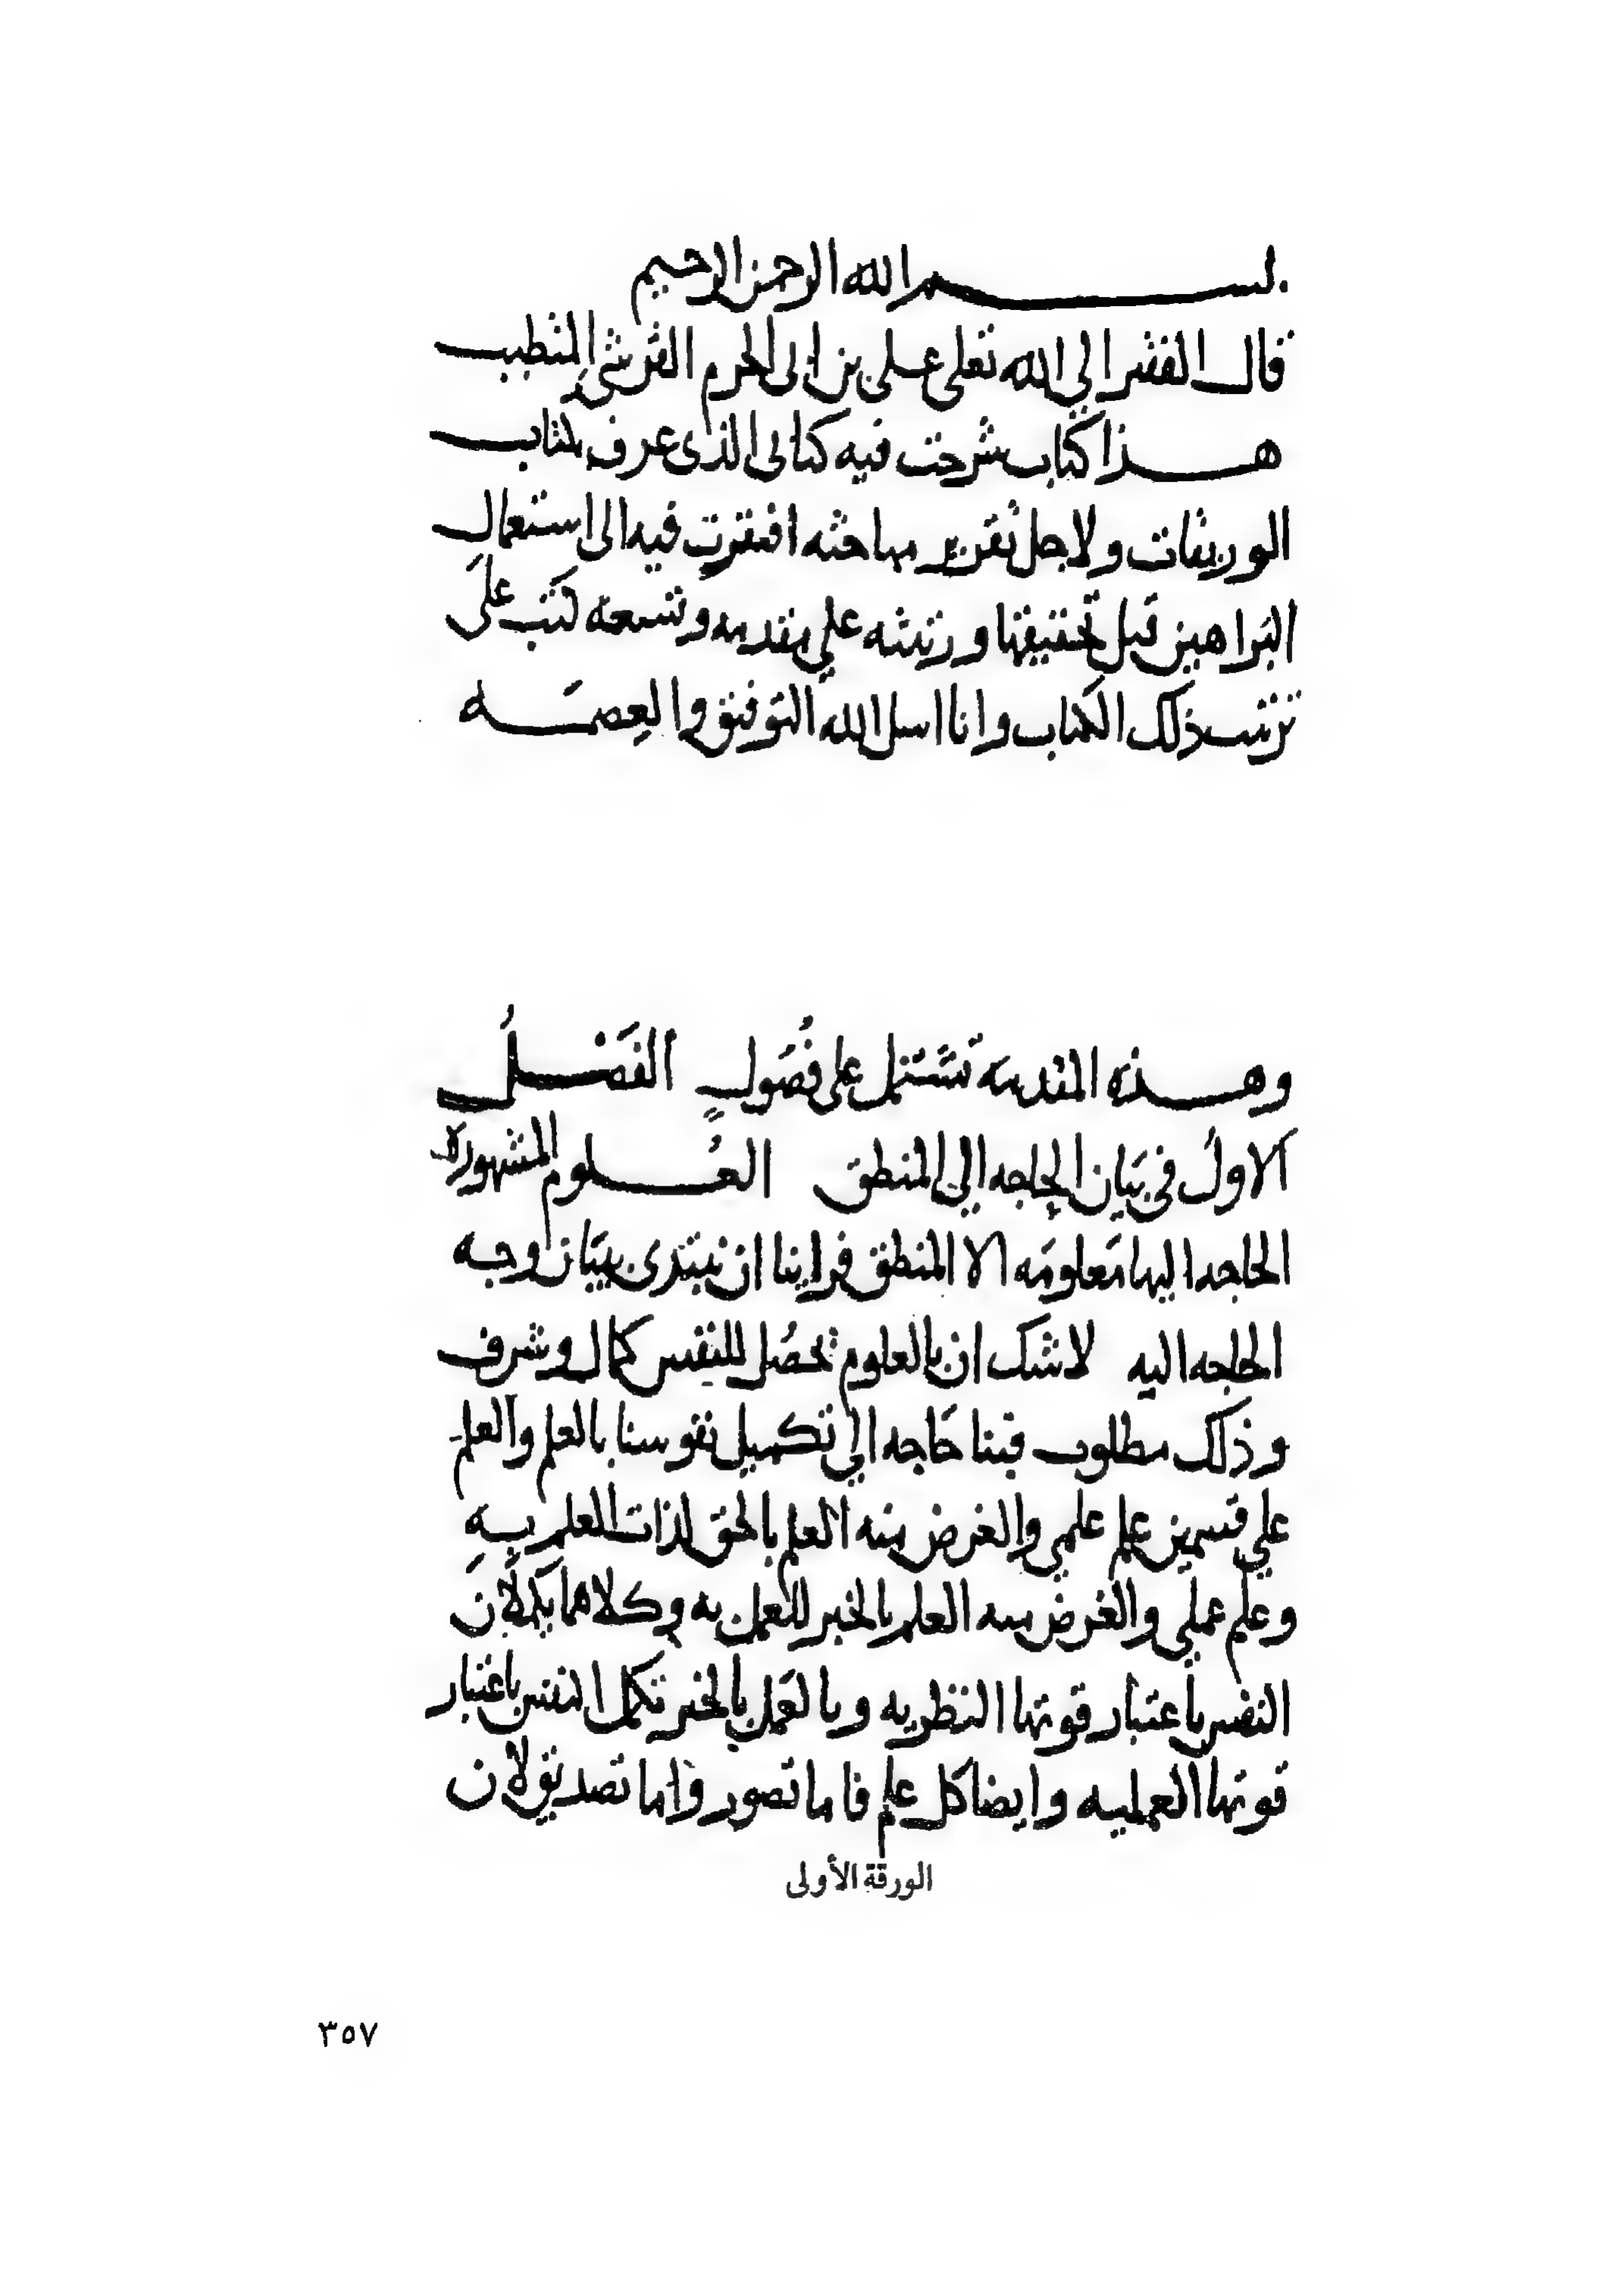 بسم الله الرحمن الرحيم
قال الفقير الى الله تعلى على بن ابى الحرم القرشى المتطبب
هذا كتاب شرحت فيه كتابى الذى عرف بكتاب
الوريقات ولاجل تقرير مباحثه افتقرت فيه الى استعمال
البراهين قبل تحقيقها ورتبته على مقدمه وتسعه كتب على
ترتيب ذلك الكتاب وانا اسل الله التوفيق والعصمه
وهذه المقدمه تشتمل على فُصُولٍ الفَصْلُ
الاولُ فى بَيان الحاجه الى المنطق العُلوم المشهوره
الحاجه اليها مَعلومَه الا المنطق فراينا ان نبتدى ببيَان وجه
الحاجه اليه لا شك ان بالعلوم تحصُل للنفس كمال وشرف
وذلك مطلوب فبنا حَاجه الى تكميل نفوسنا بالعلم والعلم
على قسمين علم علمي والغرض منه العلم بالحق لذات العلم به
وعلم عملي والغرض منه العلم بالخير للعمل به وكلاهما يكملان
النفس باعتبار قوتها النظريه وبالعَمل بالخير تكمل النفس باعتبار
قوتها العمليه وايضا كل علم فاما تصور واما تصديق لان
الورقة الأولى
٣٥٧